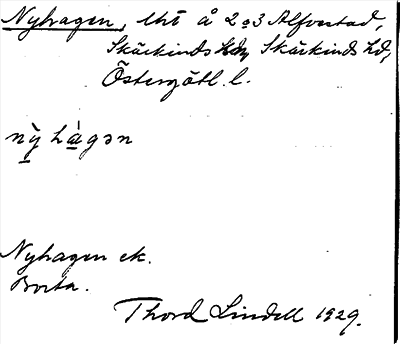 Nyhagen, lht å 2 o 3 Alfvestad,
Skärkinds Skärkinds hd,
Östergötl. l.
nỳ hàgən
Nyhagen ek.
Borta.
Thord Lindell 1929.